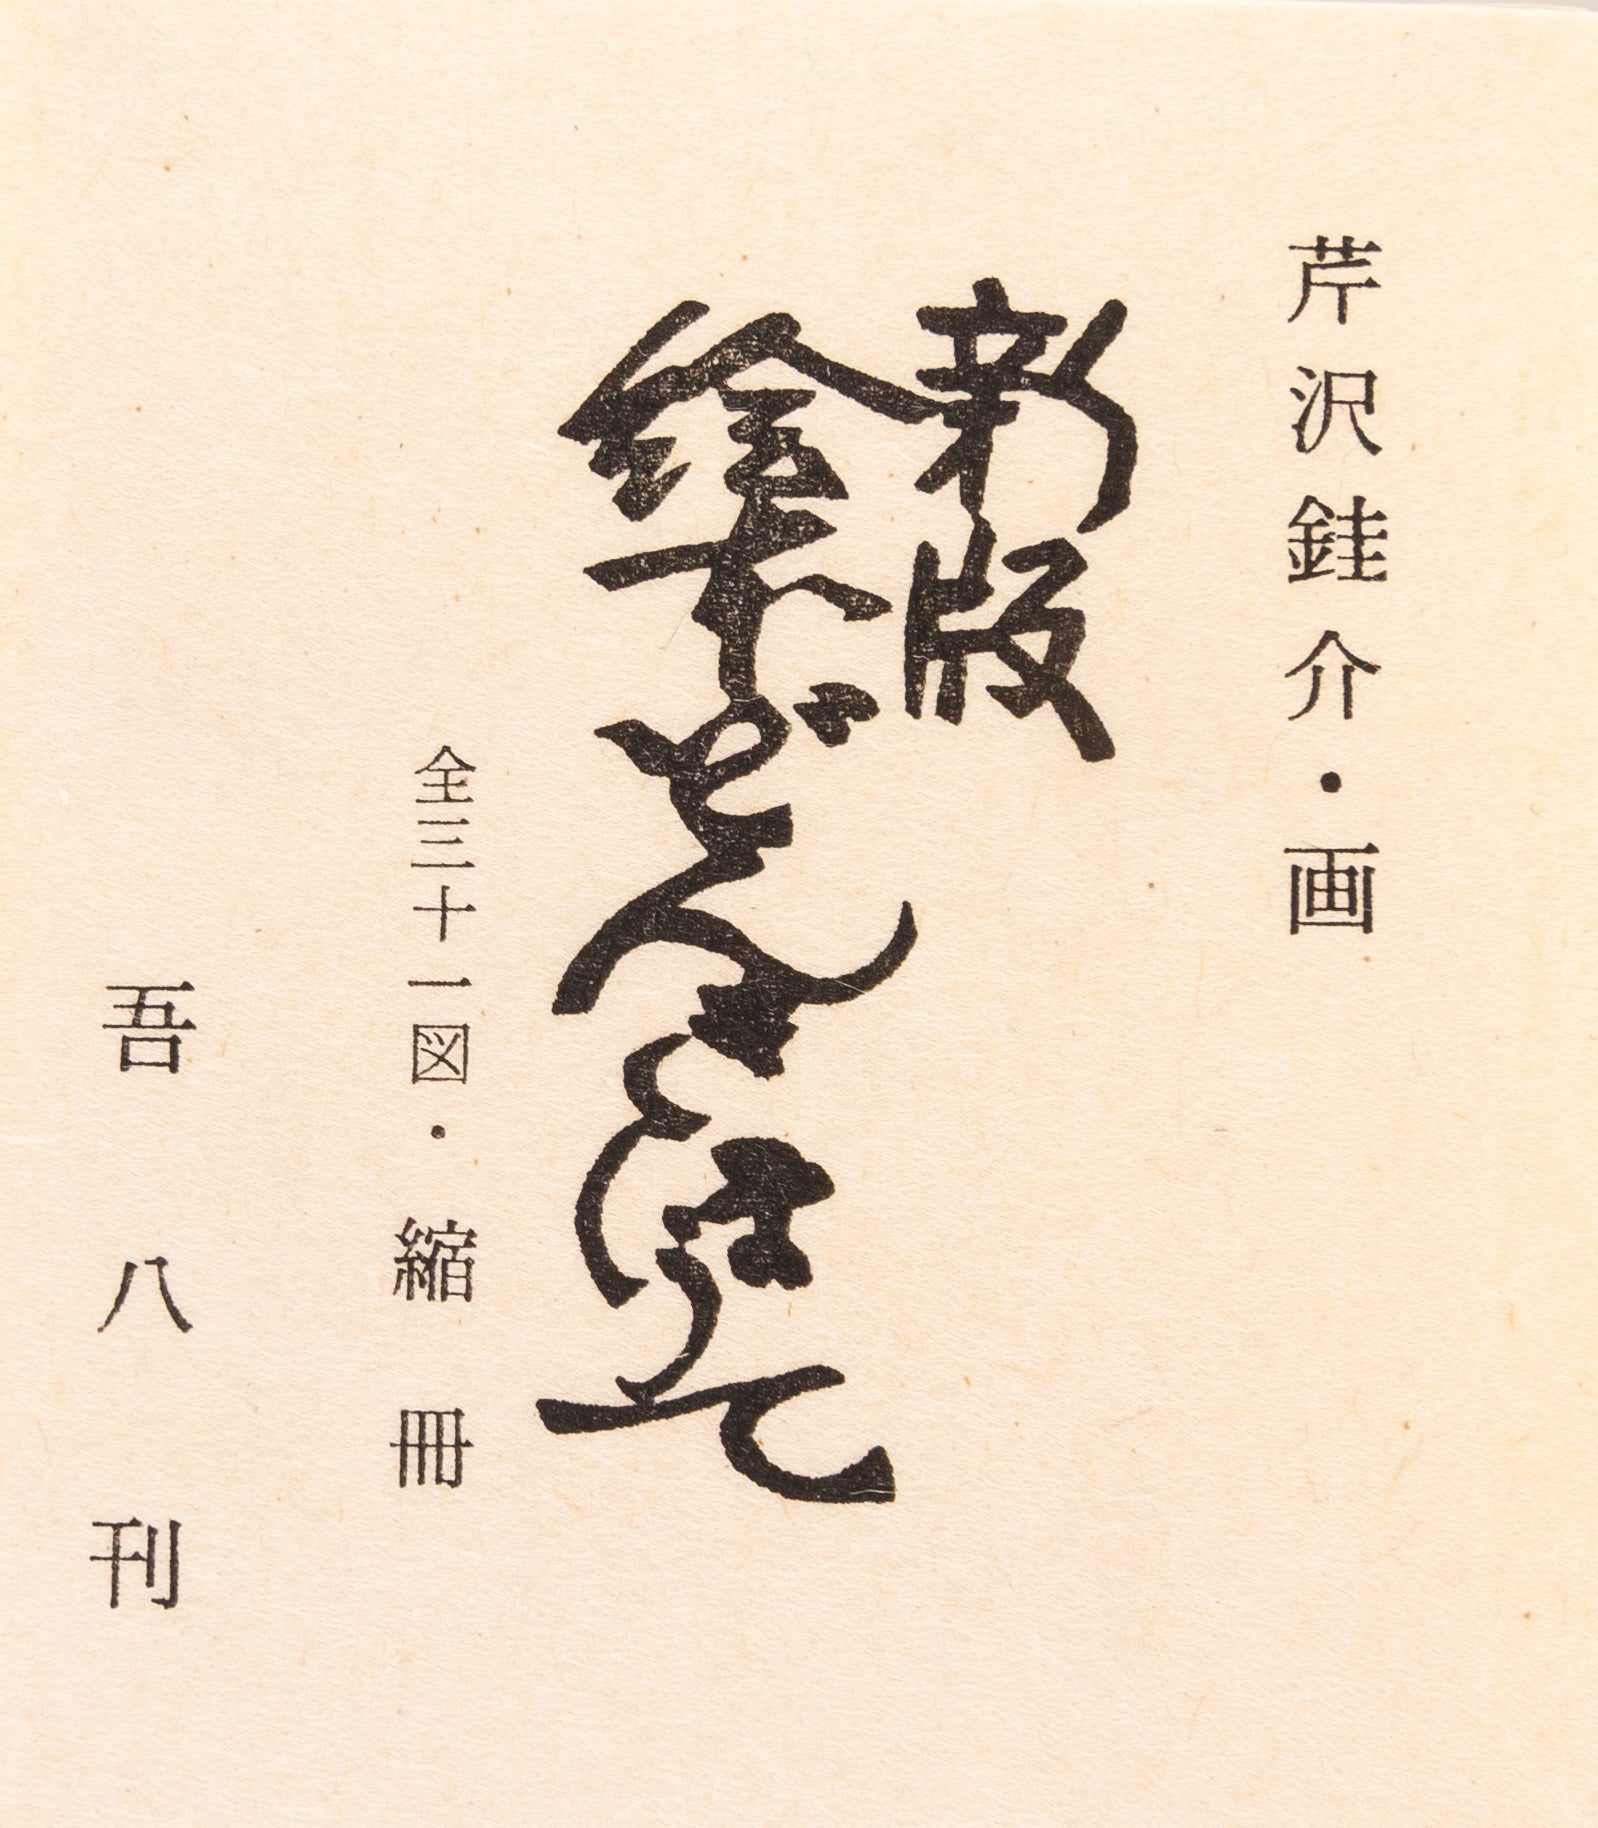 芹沢銈介・画
新版
絵本どんきほうて
全三十一図・縮冊
吾八刊